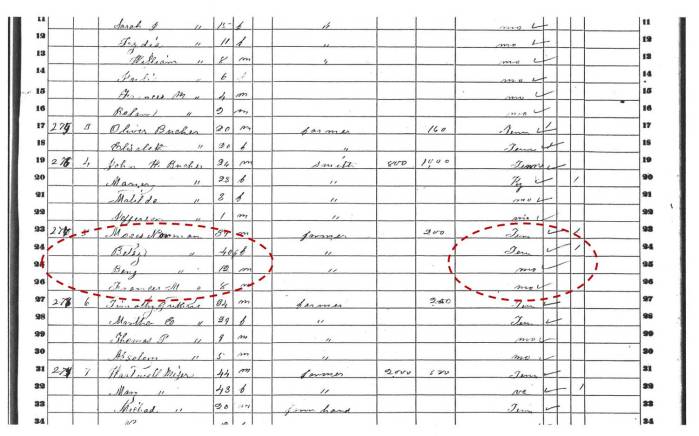 11 Sarah J " 15 f " mo 11
12 Lydia " 11 f mo 12
13 William " 8 m " mo 13
14 " 6 f mo 14
15 Frances M " 4 m mo 15
16 Roland " 2 m mo 16
17 275 3 Oliver Bucher 20 m farmer 160 Tenn 1 17
18 Elizabeth " 20 f " Tenn 18
19 276 4 John H Bucher 34 m Smith 800 1000 Tenn 19
20 " 23 f " Ky 1 20
21 Matilda " 3 f " mo 21
22 Jefferson " 1 m " mo 22
23 277 5 Moses Norman m farmer 200 Ten 1 23
24 Betsy " 40 f " Ten 1 24
25 Benj " 12 m " mo 25
26 Frances M " 8 m mo 26
27 278 6 34 m farmer Ten 27
28 Martha E " 29 f " Ten 28
29 Thomas P " 9 m " mo 29
30 Absolem " 5 m " mo 30
31 279 7 Hartwell 44 m farmer 2000 Tenn 31
32 Mary " 43 f " va 1 32
33 " 20 m farm hand Tenn 33
34 34